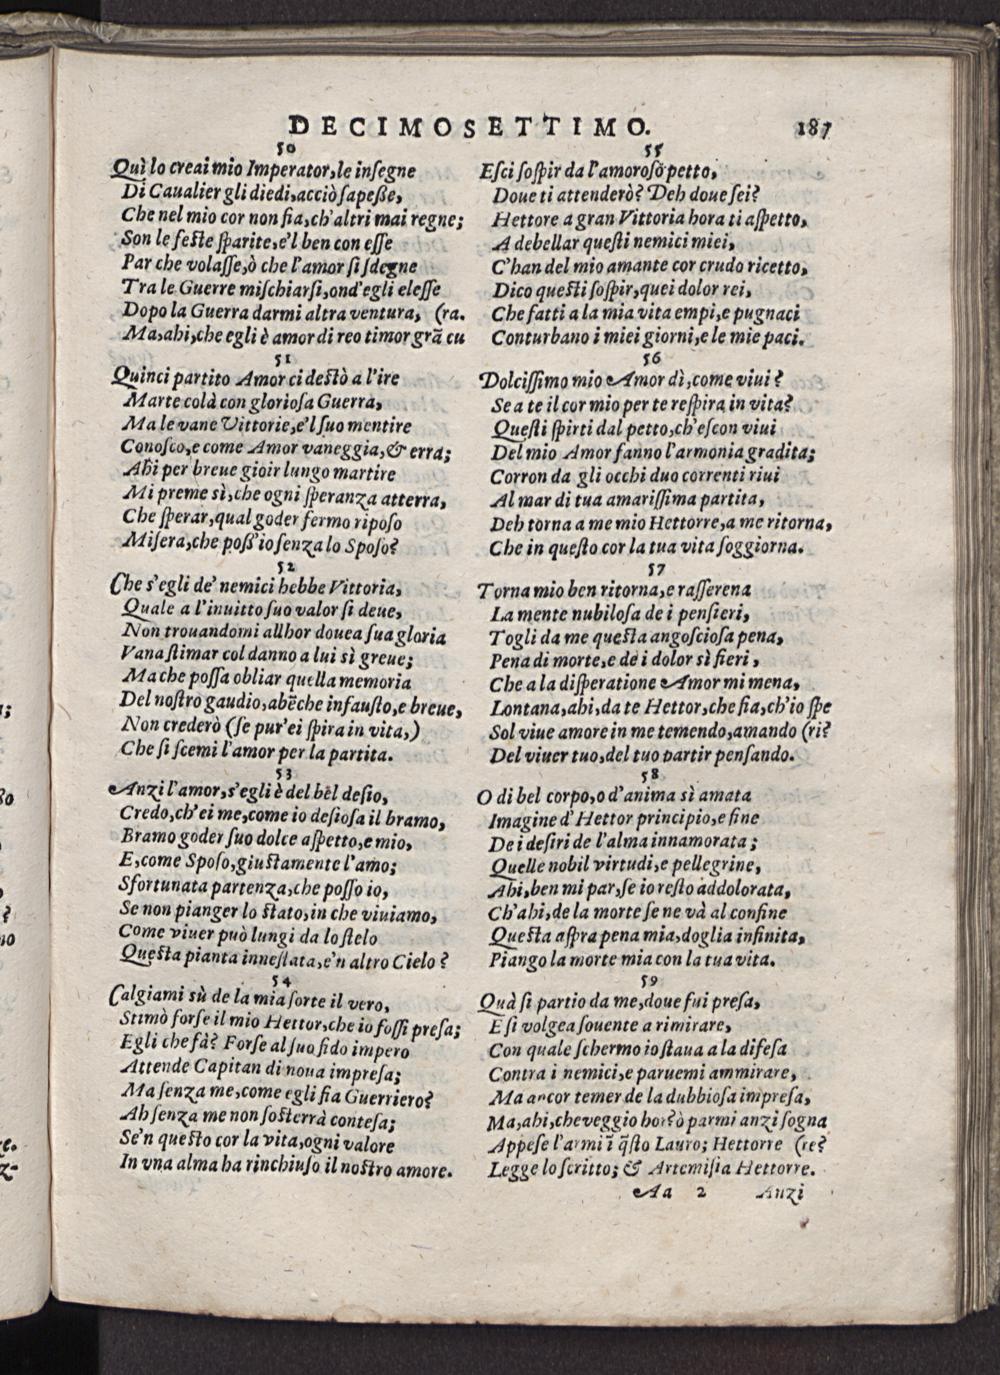 DECIMOSETTIMO. 187
50
Quì lo creai mio Imperator, le inſegne
Di Caualier gli diedi, acciò ſapeße,
Che nel mio cor non fia, ch'altri mai regne;
Son le feſte ſparite, e'l ben con eſſe
Par che volaſſe, ò che l'amor ſi ſdegne
Tra le Guerre miſchiarſi, ond'egli eleſſe
Dopo la Guerra darmi altra ventura, (ra.
Ma, ahi, che egli è amor di reo timor grã cu
51
Quinci partito Amor ci deſtò a l'ire
Marte colà con glorioſa Guerra,
Ma le vane Vittorie, e'l ſuo mentire
Conoſco, e come Amor vaneggia, & erra;
Ahi per breue gioir lungo martire
Mi preme sì, che ogni ſperanza atterra,
Che ſperar, qual goder fermo ripoſo
Miſera, che poß'io ſenza lo Spoſo?
52
Che s'egli de' nemici hebbe Vittoria,
Quale a l'inuitto ſuo valor ſi deue,
Non trouandomi allhor douea ſua gloria
Vana ſtimar col danno a lui sì greue;
Ma che poſſa obliar quella memoria
Del noſtro gaudio, abẽche infauſto, e breue,
Non crederò (ſe pur'ei ſpira in vita,)
Che ſi ſcemi l'amor per la partita.
53
Anzi l'amor, s'egli è del bel deſio,
Credo, ch'ei me, come io deſioſa il bramo,
Bramo goder ſuo dolce aſpetto, e mio,
E, come Spoſo, giuſtamente l'amo;
Sfortunata partenza, che poſſo io,
Se non pianger lo ſtato, in che viuiamo,
Come viuer può lungi da lo ſtelo
Queſta pianta inneſtata, e'n altro Cielo?
54
Calgiami sù de la mia ſorte il vero,
Stimò forſe il mio Hettor, che io foſſi preſa;
Egli che fà? Forſe al ſuo fido impero
Attende Capitan di noua impreſa;
Ma ſenza me, come egli fia Guerriero?
Ah ſenza me non ſoſterrà conteſa;
Se'n queſto cor la vita, ogni valore
In vna alma ha rinchiuſo il noſtro amore.
55
Eſci ſoſpir da l'amoroſo petto,
Doue ti attenderò? Deh doue ſei?
Hettore a gran Vittoria hora ti aſpetto,
A debellar queſti nemici miei,
C'han del mio amante cor crudo ricetto,
Dico queſti ſoſpir, quei dolor rei,
Che fatti a la mia vita empi, e pugnaci
Conturbano i miei giorni, e le mie paci.
56
Dolciſſimo mio Amor dì, come viui?
Se a te il cor mio per te reſpira in vita?
Queſti ſpirti dal petto, ch'eſcon viui
Del mio Amor fanno l'armonia gradita;
Corron da gli occhi duo correnti riui
Al mar di tua amariſſima partita,
Deh torna a me mio Hettorre, a me ritorna,
Che in queſto cor la tua vita ſoggiorna.
57
Torna mio ben ritorna, e raſſerena
La mente nubiloſa de i penſieri,
Togli da me queſta angoſcioſa pena,
Pena di morte, e de i dolor sì fieri,
Che a la diſperatione Amor mi mena,
Lontana, ahi, da te Hettor, che fia, ch'io ſpe
Sol viue amore in me temendo, amando (ri?
Del viuer tuo, del tuo partir penſando.
58
O di bel corpo, o d'anima sì amata
Imagine d'Hettor principio, e fine
De i deſiri de l'alma innamorata;
Quelle nobil virtudi, e pellegrine,
Ahi, ben mi par, ſe io reſto addolorata,
Ch'ahi, de la morte ſe ne và al confine
Queſta aſpra pena mia, doglia infinita,
Piango la morte mia con la tua vita.
59
Quà ſi partio da me, doue fui preſa,
E ſi volgea ſouente a rimirare,
Con quale ſchermo io ſtaua a la difeſa
Contra i nemici, e paruemi ammirare,
Ma ancor temer de la dubbioſa impreſa,
Ma, ahi, che veggio hor? ò parmi anzi ſogna
Appeſe l'armi ĩ q̃ſto Lauro; Hettorre (re?
Legge lo ſcritto; & Artemiſia Hettorre.
Aa 2 Anzi